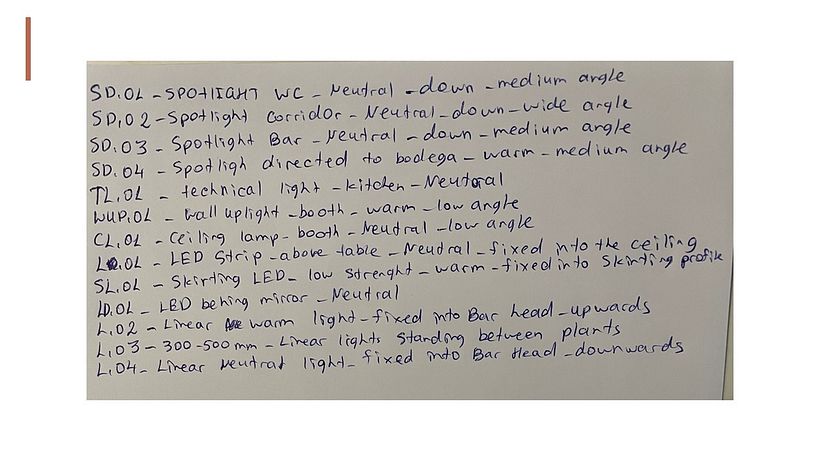 SD.01 - SPOTLIGHT WC - Neutral - down - medium angle
SD.02 - Spotlight Corridor - Neutral - down - wide angle
SD.03 - Spotlight Bar - Neutral - down - medium angle
SD.04 - Spotligh directed to bodega - warm - medium angle
TL.01 - technical light - kitchen - Neutral
WUP.01 - wall uplight - booth - warm - low angle
CL.01 - Ceiling lamp - booth - Neutral - low angle
L.01 - LED Strip - above table - Neutral - fixed into the ceiling
SL.01 - Skirting LED - low strenght - warm - fixed into Skinting profile
LD.01 - LED behing mirror - Neutral
L.02 - Linear warm light - fixed into Bar head - upwards
L.03 - 300-500mm - Linear lights standing between plants
L.04 - Linear Neutral light - fixed into Bar Head - downwards